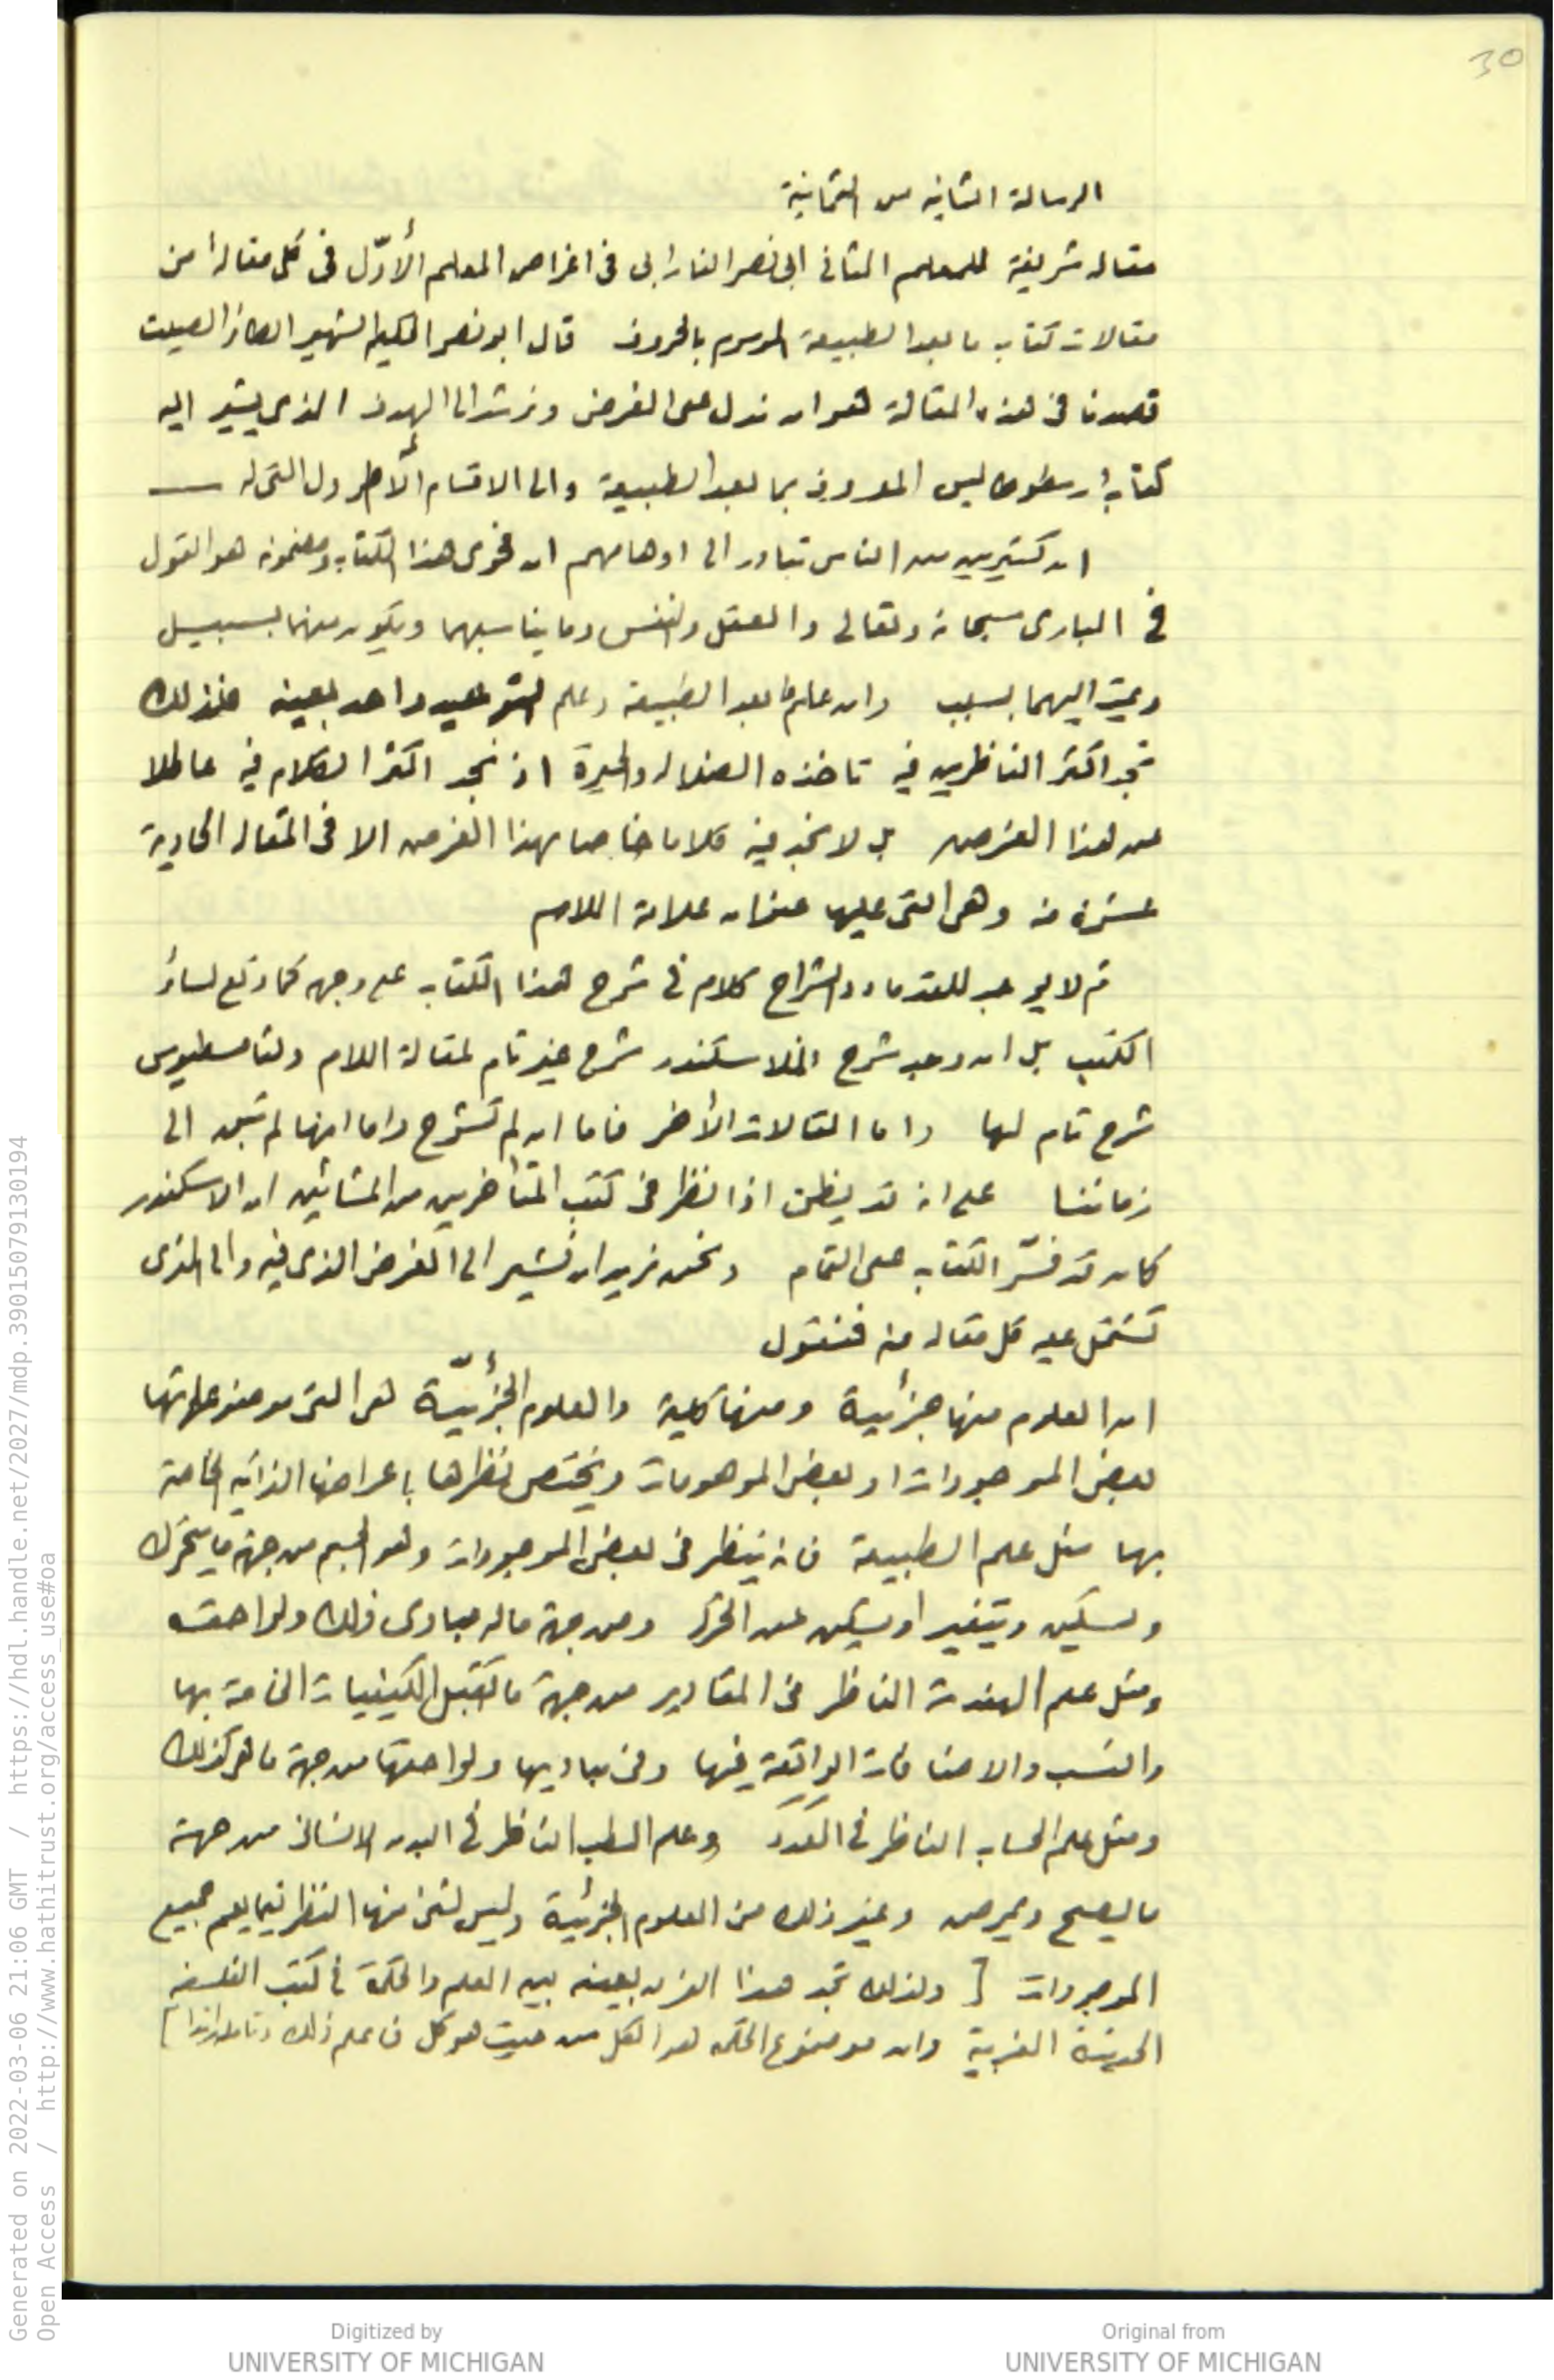 30
الرسالة الثانية من الثمانية
مقالة شريفة للمعلم الثاني ابى نصر الفارابى فى اغراض المعلم الأوّل فى كل مقالة من
مقالات كتاب ما بعد الطبيعة الموسوم بالحروف قال ابو نصر الحكيم الشهير الصيت
قصدنا فى هذه المقالة هو ان ندل على الغرض ونرشد الى الهدف الذى يشير اليه
كتاب ارسطوطاليس المعروف بما بعد الطبيعة والى الاقسام الأول التى له
ان كثيرين من الناس تبادر الى اوهامهم ان فحوى هذا الكتاب ومضمونه هو القول
فى البارى سبحانه وتعالى والعقل والنفس وما يناسبهما ويكون منهما بسبيل
ويمت اليهما بسبب وان علم ما بعد الطبيعة وعلم التوحيد واحد بعينه فلذلك
تجد اكثر الناظرين فيه تاخذه الضلالة والحيرة اذ نجد اكثر الكلام فيه عاطلا
عن هذا الغرض بل لا نجد فيه كلاما خاصا بهذا الغرض الا فى المقالة الحادية
عشرة منه وهى التى عليها عنوان علامة اللام
ثم لا يوجد للقدماء والشراح كلام فى شرح هذا الكتاب على وجهه كما وقع لسائر
الكتب بل ان وجد شرح فللاسكندر شرح غير تام لمقالة اللام ولثامسطيوس
شرح تام لها واما المقالات الأخر فاما ان لم تشرح واما انها لم تبق الى
زماننا على انه قد يظن اذا نظر فى كتب المتأخرين من المشائين ان الاسكندر
كان قد فسّر الكتاب على التمام ونحن نريد ان نشير الى الغرض الذى فيه والى الذى
تشتمل عليه كل مقالة منه فنقول
ان العلوم منها جزئية ومنها كلية والعلوم الجزئيّة هى التى موضوعاتها
بعض الموجودات او بعض الموهومات ويختص نظرها باعراضها الذاتية الخاصة
بها مثل علم الطبيعة فانه ينظر فى بعض الموجودات وهو الجسم من جهة ما يتحرك
ويسكن ويتغير او يسكن عن الحركة ومن جهة ماله مبادى ذلك ولواحقه
ومثل علم الهندسة الناظر فى المقادير من جهة ما تقبل الكيفيات الخاصة بها
والنسب والاضافات الواقعة فيها وفى مباديها ولواحقها من جهة ما هو كذلك
ومثل علم الحساب الناظر فى العدد وعلم الطب الناظر فى البدن الانسانى من جهة
ما يصح ويمرض وغير ذلك من العلوم الجزئية وليس لشئ منها النظر فيما يعم جميع
الموجودات [ ولذلك تجد هذا الفرق بعينه بين العلم والحكمة فى كتب الفلسفة
الحديثة الغربية وان موضوع الحكمة هو الكل من حيث هو كل فاعلم ذلك ]
Generated on 2022-03-06 21:06 GMT / https://hdl.handle.net/2027/mdp.39015079130194
Open Access / http://www.hathitrust.org/access_use#oa
Digitized by
UNIVERSITY OF MICHIGAN
Original from
UNIVERSITY OF MICHIGAN